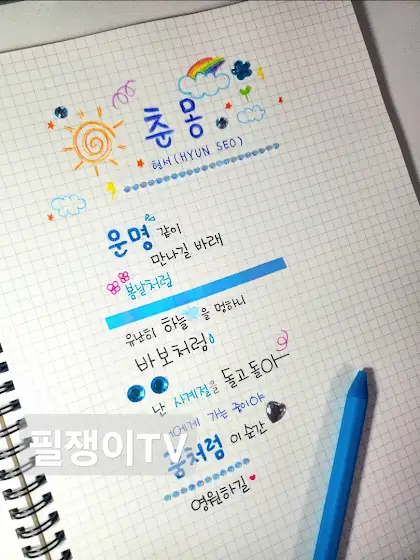 춘몽
현서(HYUN SEO)
운명 같이
만나길 바래
봄날처럼
유난히 하늘을 멍하니
바보처럼
난 사계절을 돌고 돌아
너에게 가는 중이야
꿈처럼 이 순간
영원하길
필쟁이TV